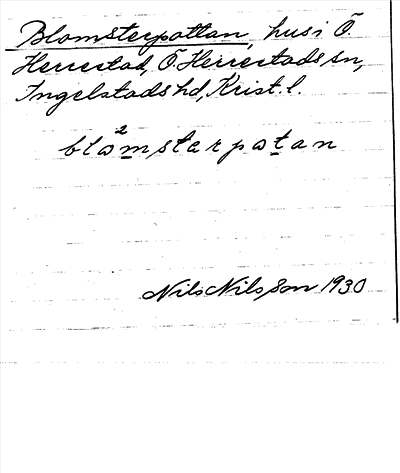 Blomsterpottan, hus i Ö.
Herrestad, Ö. Herrestads sn,
Ingelstads hd, Krist. l.
blo²mstarpotan
Nils Nilsson 1930